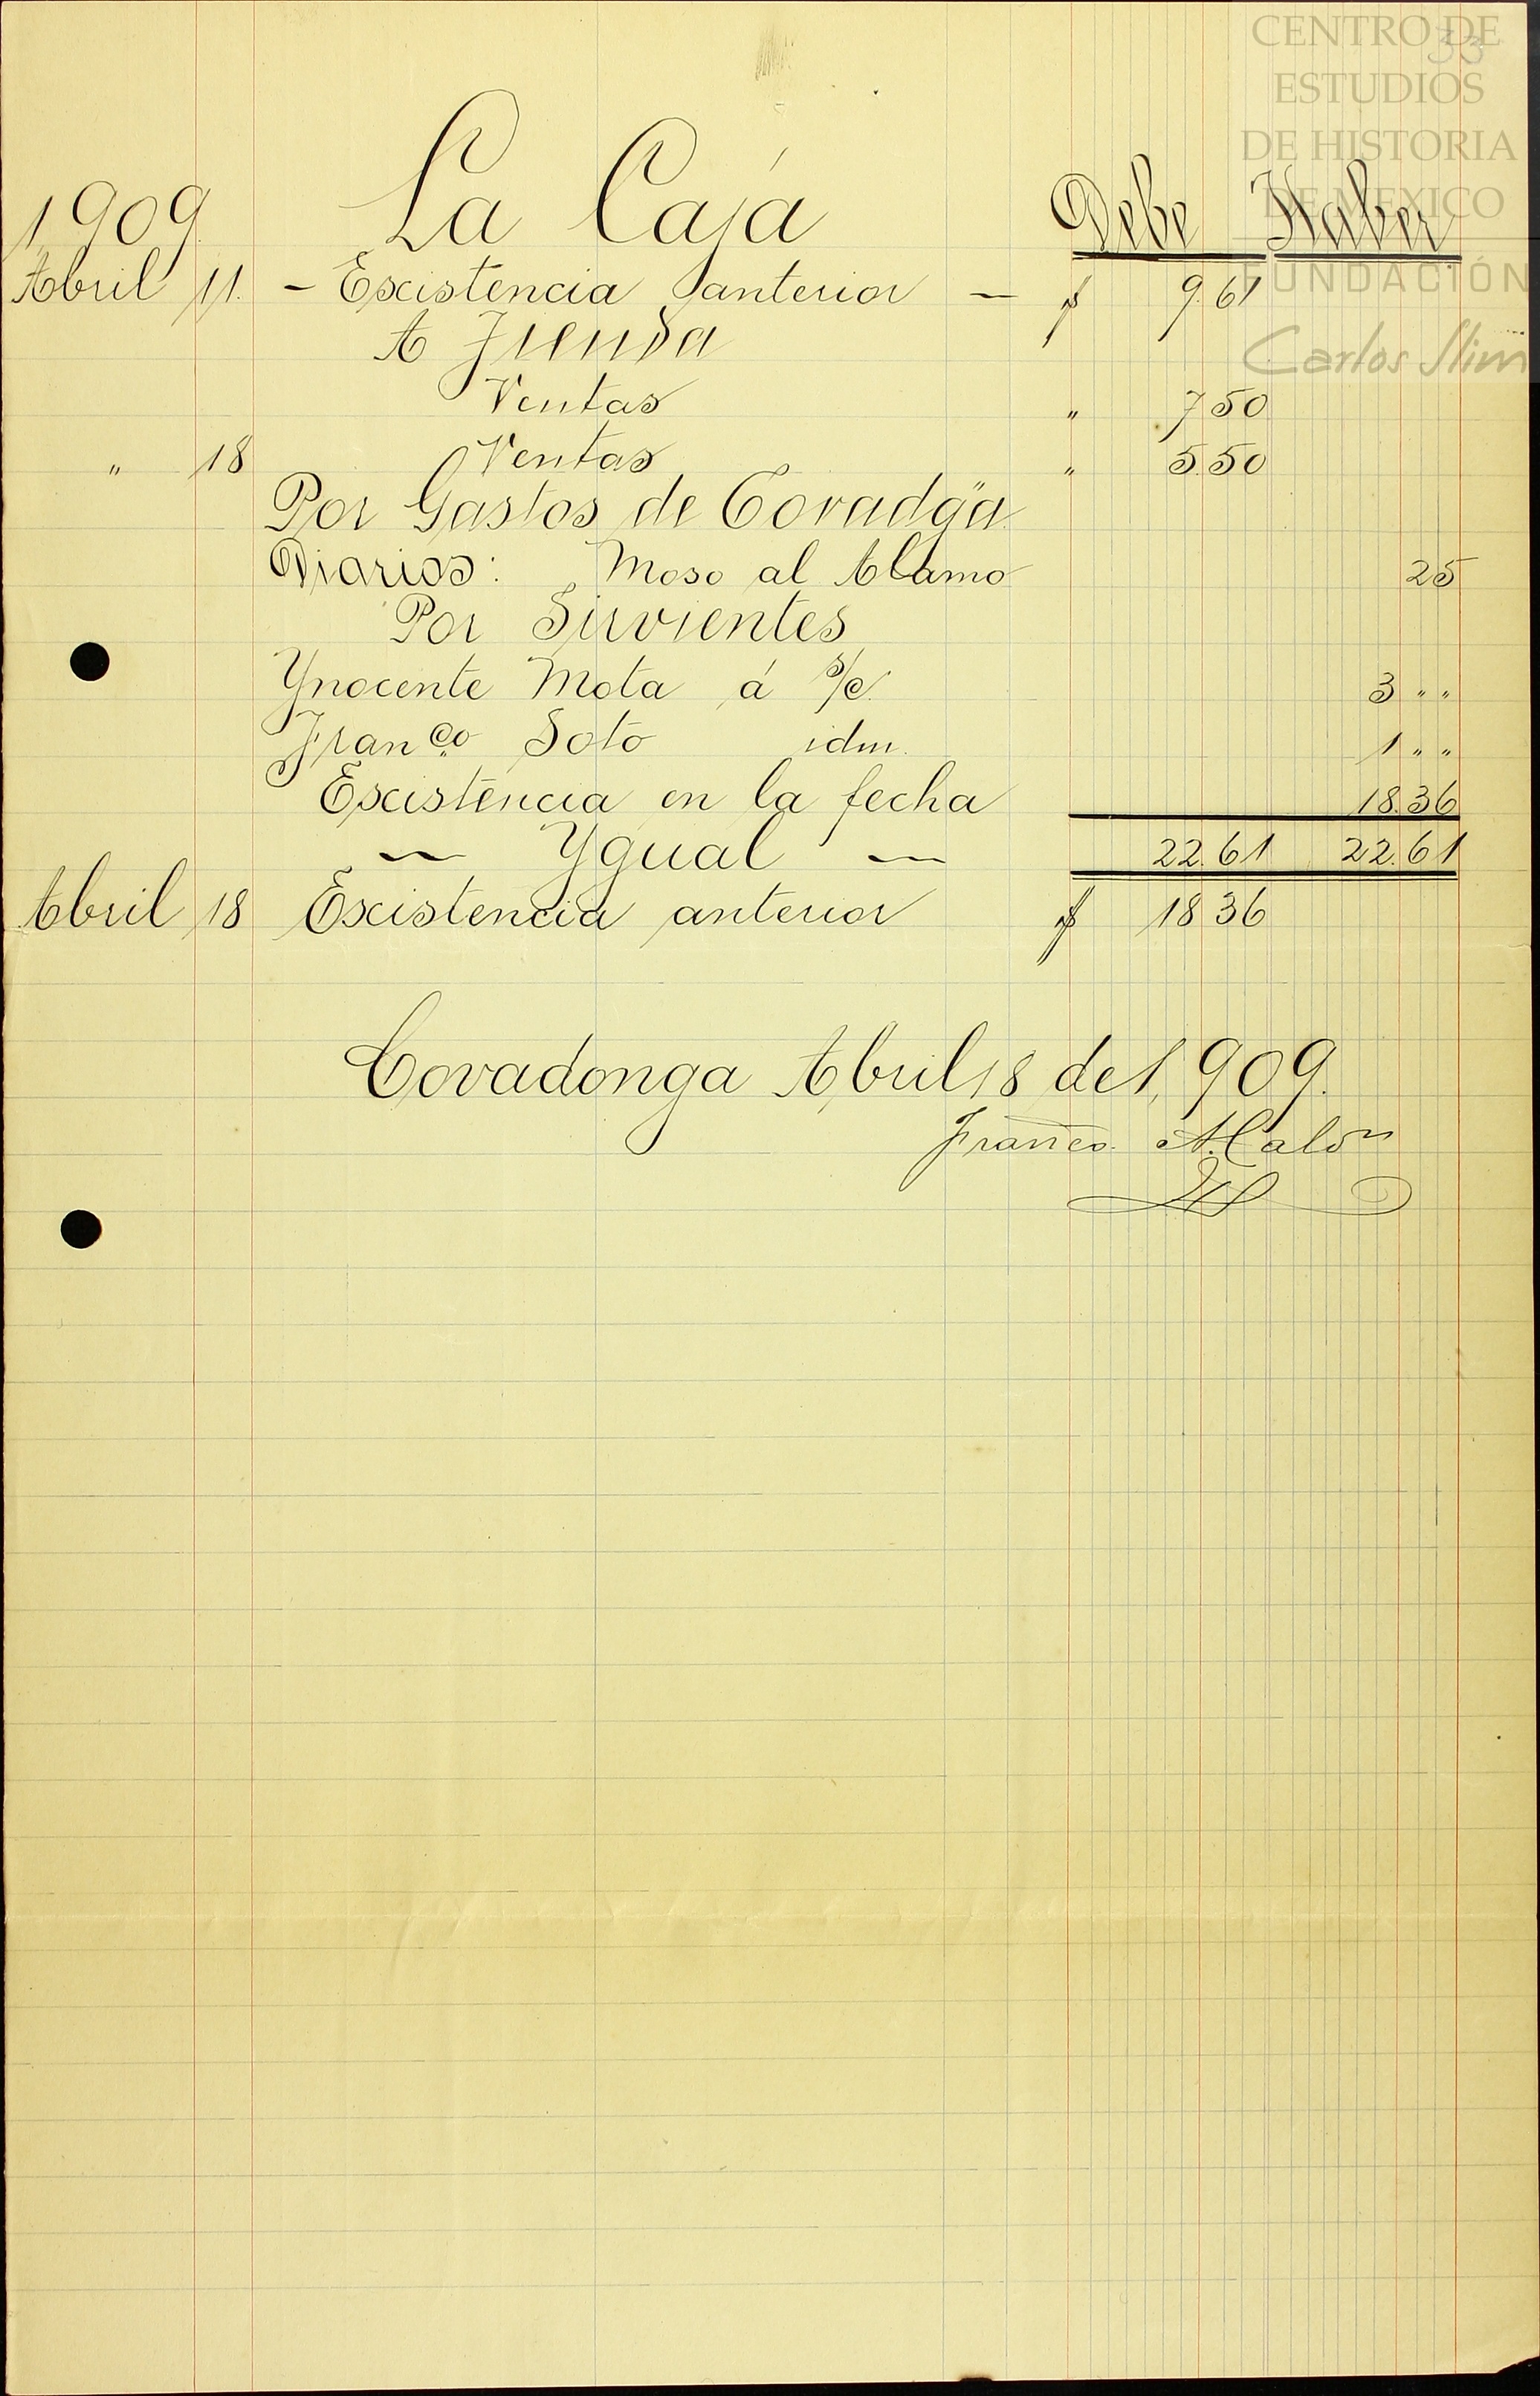 CENTRO DE
ESTUDIOS
DE HISTORIA
DE MEXICO
FUNDACIÓN
Carlos Slim
33
1909 La Caja Debe Haber
Abril 11. - Excistencia anterior — $ 9.61
A Tienda
Ventas " 7.50
" 18 Ventas " 5.50
Por Gastos de Covadga
Diarios: Moso al Alamo 25
Por Sirvientes
Ynocente Mota á s/c. 3 " "
Franco Soto idm. 1 " "
Excistencia en la fecha 18.36
— Ygual — 22.61 22.61
Abril 18 Excistencia anterior $ 18 36
Covadonga Abril 18 de 1,909.
Franco.